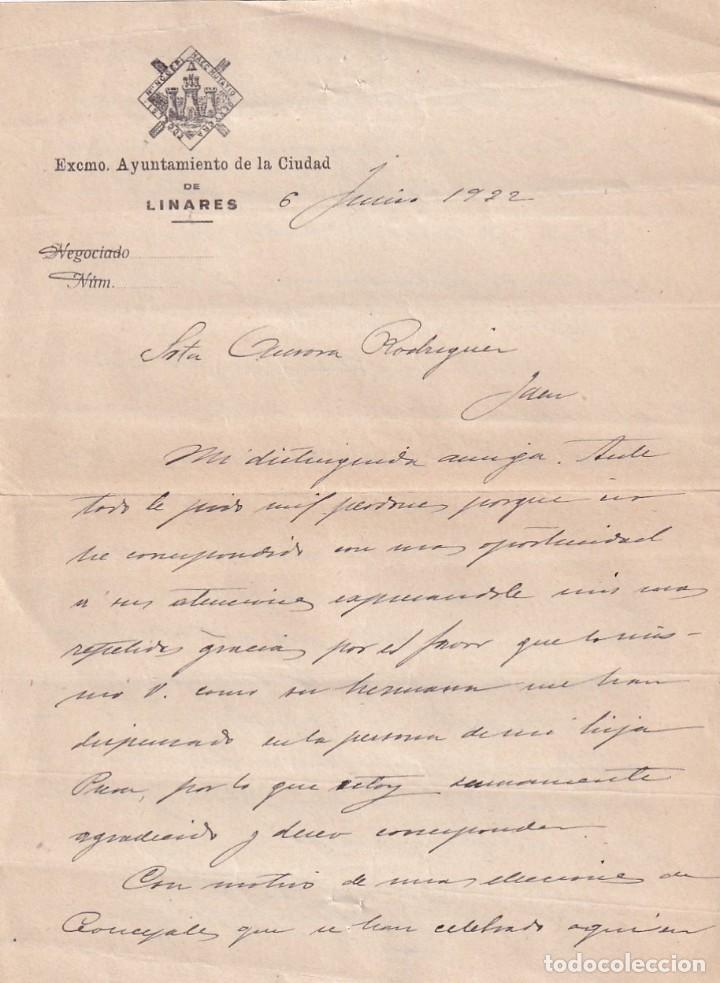 Excmo. Ayuntamiento de la Ciudad
DE
LINARES
6 Junio 1922
Negociado
Núm.
Srta Aurora Rodriguez
Jaen
Mi distinguida amiga. Ante
todo le pido mil perdones porque no
he correspondido con mas oportunidad
a sus atenciones expresandole mis mas
repetidas gracias por el favor que lo mis-
mo V. como su hermana me han
dispensado en la persona de mi hija
por lo que estoy sumamente
agradecido y deseo corresponder.
Con motivo de unas elecciones de
Concejales que se han celebrado aqui en
todocoleccion.net